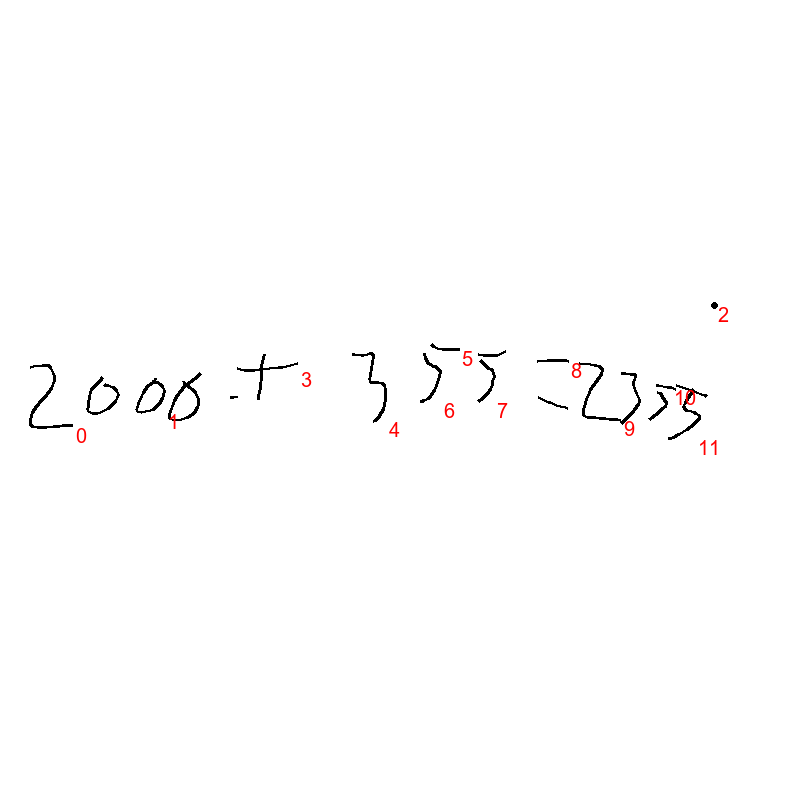 2000 + 355 = 2355
0 1 2 3 4 5 6 7 8 9 10 11